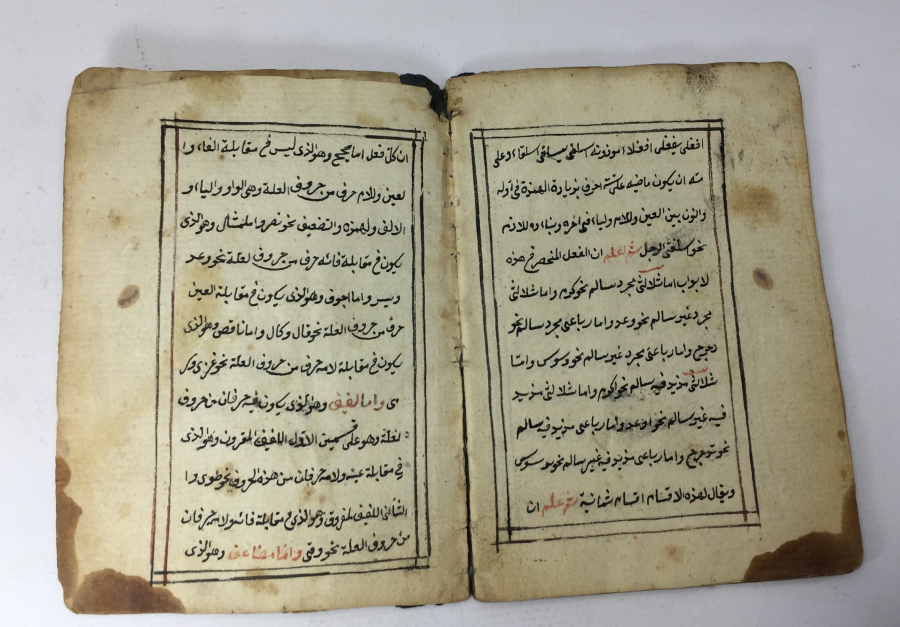 افعلى يفعلى افعلاء موزونه اسلنقى يسلنقى اسلنقاء وعلا
مته ان يكون ماضيه على ستة احرف بزيادة الهمزة فى اوله
والنون بين العين واللام والياء فى اخره وبناءه للازم
نحو اسلنقى الرجل ثم اعلم ان الفعل المنحصر فى هذه
لابواب اما ثلاثى مجرد سالم نحو كرم واما ثلاثى
مجرد غير سالم نحو وعد واما رباعى مجرد سالم نحو
دحرج واما رباعى مجرد غير سالم نحو وسوس واما
ثلاثى مزيد فيه سالم نحو اكرم واما ثلاثى مزيد
فيه غير سالم نحو اوعد واما رباعى مزيد فيه سالم
نحو تدحرج واما رباعى مزيد فيه غير سالم نحو توسوس
ويقال لهذه الاقسام اقسام ثمانية ثم علم ان
ان كل فعل اما صحيح وهو الذى ليس فى مقابلة الفاء وا
لعين واللام حرف من حروف العلة وهى الواو والياء و
الالف والهمزه والتضعيف نحو نصر واما مثال وهو الذى
يكون فى مقابلة فائه حرف من حروف العلة نحو وعد
ويسر واما اجوف وهو الذى يكون فى مقابلة العين
حرف من حروف العلة نحو قال وكال واما ناقص وهو الذى
يكون فى مقابلة لامه حرف من حروف العلة نحو غزى ور
مى واما لفيف وهو الذى يكون فيه حرفان من حروف
لعلة وهو على قسمين الاول اللفيف المقرون وهو الذى
فى مقابلة عينه ولامه حرفان من هذه الحروف نحو طوى وا
الثانى اللفيف المفروق وهو الذى فى مقابلة فائه ولامه حرفان
من حروف العلة نحو وقى واما مضاعف وهو الذى